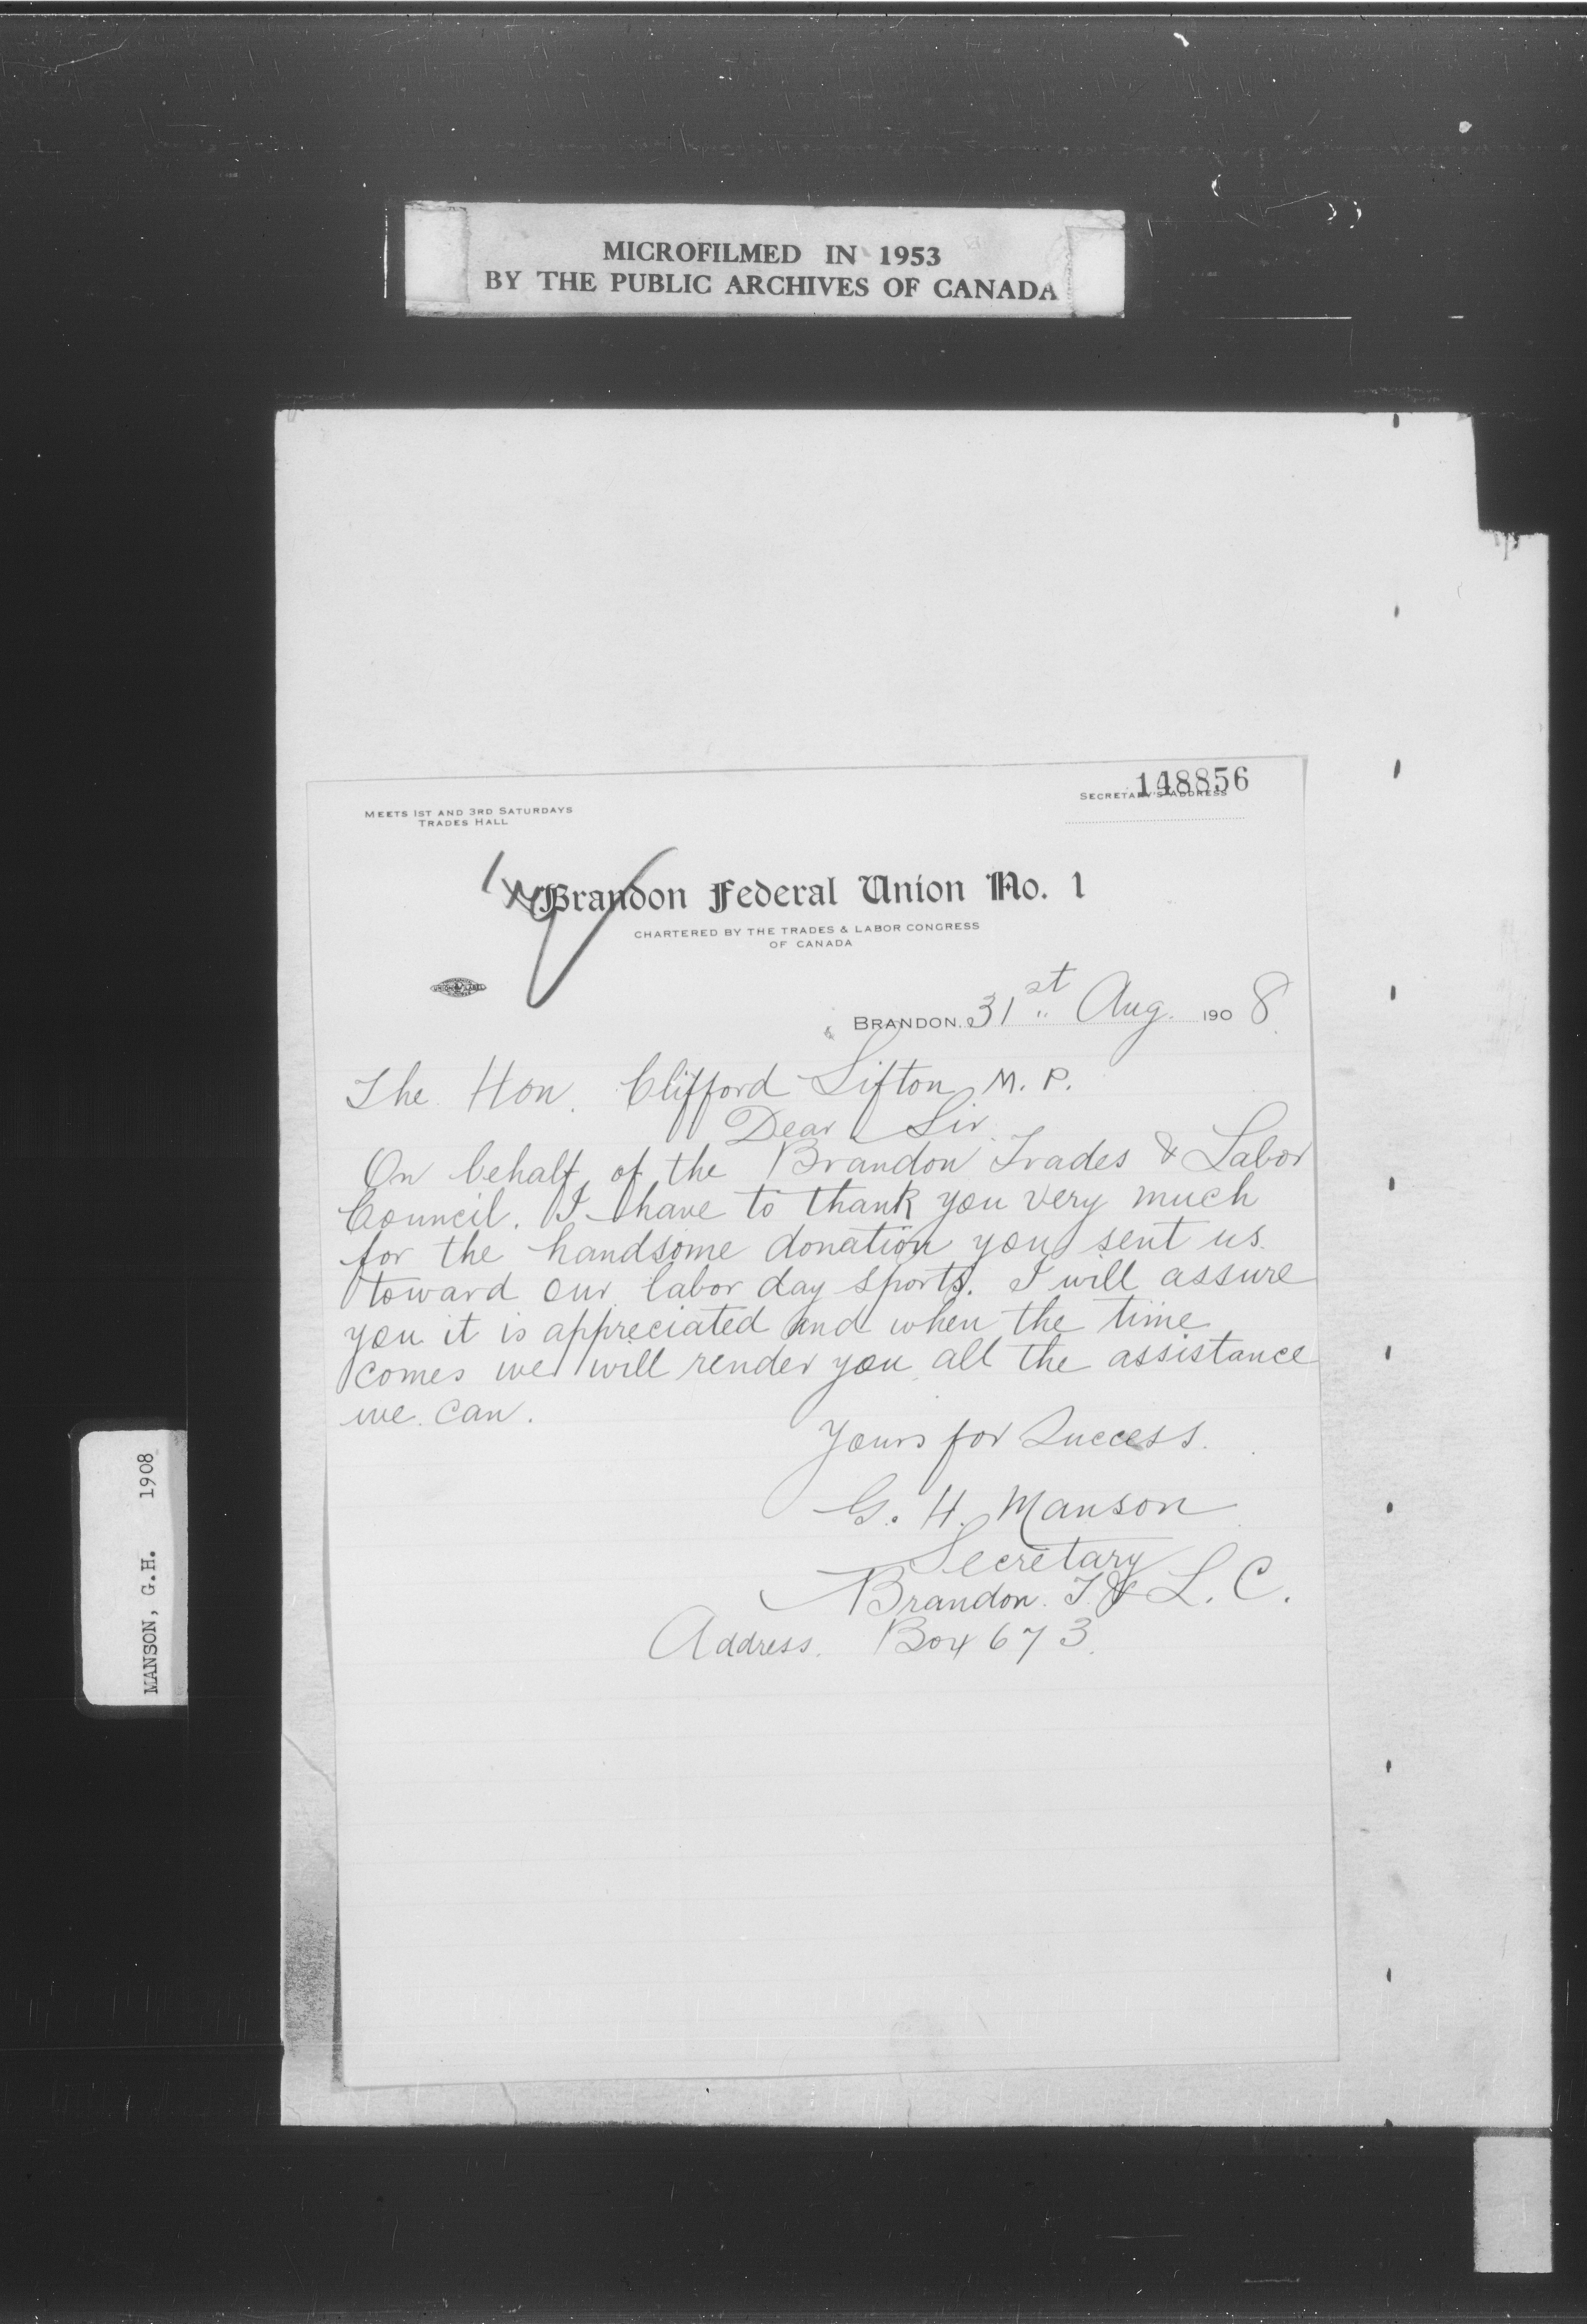 MICROFILMED IN 1953
BY THE PUBLIC ARCHIVES OF CANADA
148856
SECRETARY'S ADDRESS
MEETS 1ST AND 3RD SATURDAYS
TRADES HALL
Brandon Federal Union No. 1
CHARTERED BY THE TRADES & LABOR CONGRESS
OF CANADA
BRANDON, 31st Aug. 1908
The Hon. Clifford Sifton M. P.
Dear Sir.
On behalf of the Brandon Trades & Labor
Council. I have to thank you very much
for the handsome donation you sent us.
toward our labor day sports. I will assure
you it is appreciated and when the time
comes we will render you all the assistance
we can.
Yours for Success.
G. H. Manson
Secretary
Brandon. T. & L. C.
Address. Box 673.
MANSON, G.H. 1908